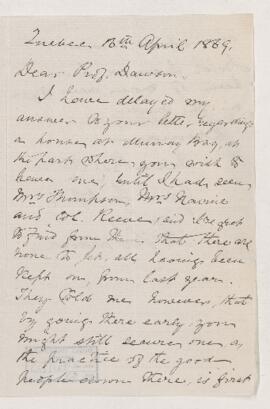 Quebec 13th April 1869.
Dear Prof. Dawson.
I have delayed my
answer to your letter regarding
a house at Murray Bay, at
the part where you wish to
have one, until I had seen
Mrs Thompson, Mrs
and Col. Reeve, and I regret
to find from them that there are
none to let, all having been
kept on, from last year.
They told me however, that
by going there early you
might still secure one, as
the practice of the good
people down there, is first